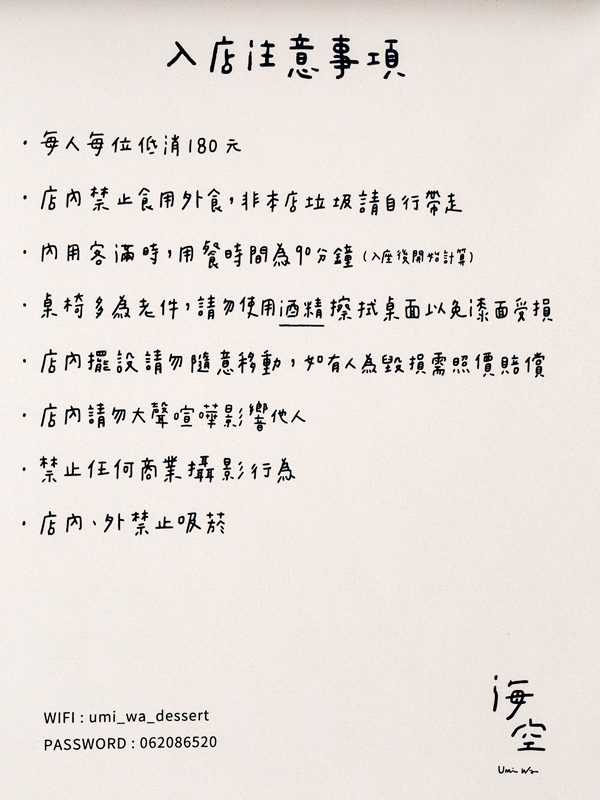 入店注意事項
・每人每位低消180元
・店內禁止食用外食，非本店垃圾請自行帶走
・內用客滿時，用餐時間為90分鐘（入座後開始計算）
・桌椅多為老件，請勿使用酒精擦拭桌面以免漆面受損
・店內擺設請勿隨意移動，如有人為毀損需照價賠償
・店內請勿大聲喧嘩影響他人
・禁止任何商業攝影行為
・店內、外禁止吸菸
WIFI : umi_wa_dessert
PASSWORD : 062086520
海
空
Umi Wa